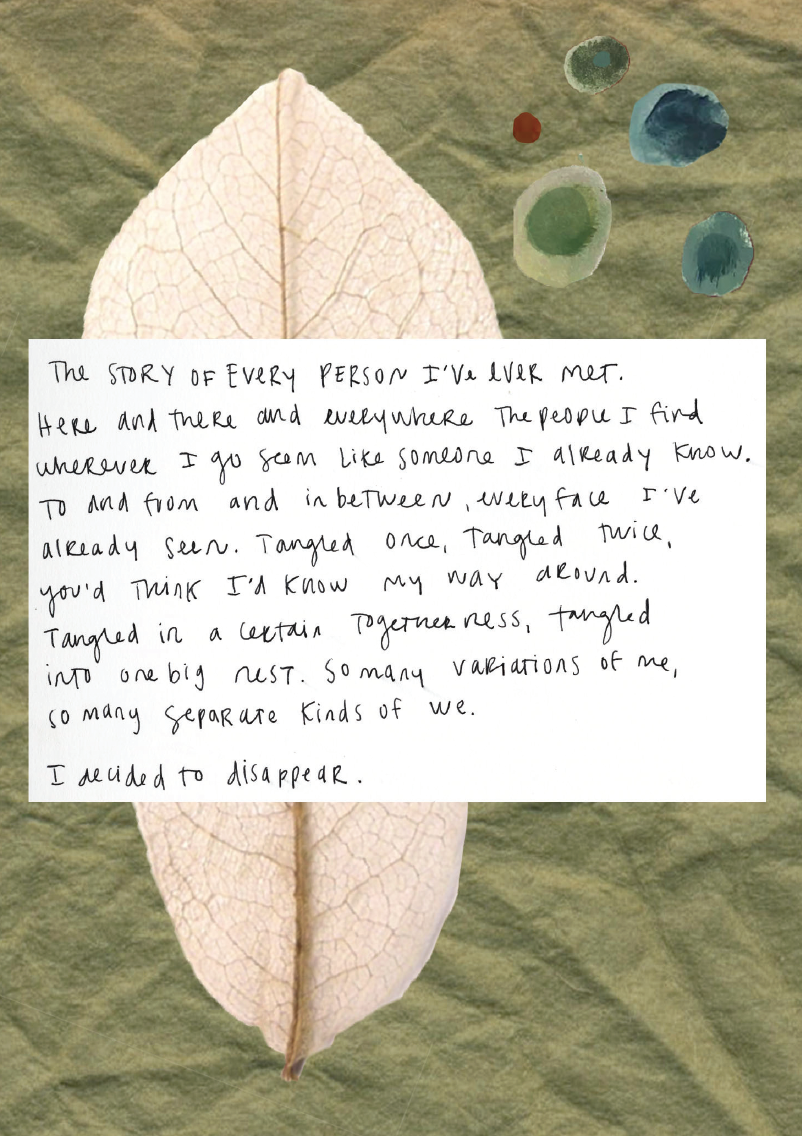 The STORY OF EVERY PERSON I'VE EVER MET.
Here and there and everywhere The people I find
wherever I go seem like someone I already know.
To and from and in between, every face I've
already seen. Tangled once, Tangled twice,
you'd Think I'd know my way around.
Tangled in a certain Togetherness, tangled
into one big nest. So many variations of me,
so many separate kinds of we.
I decided to disappear.